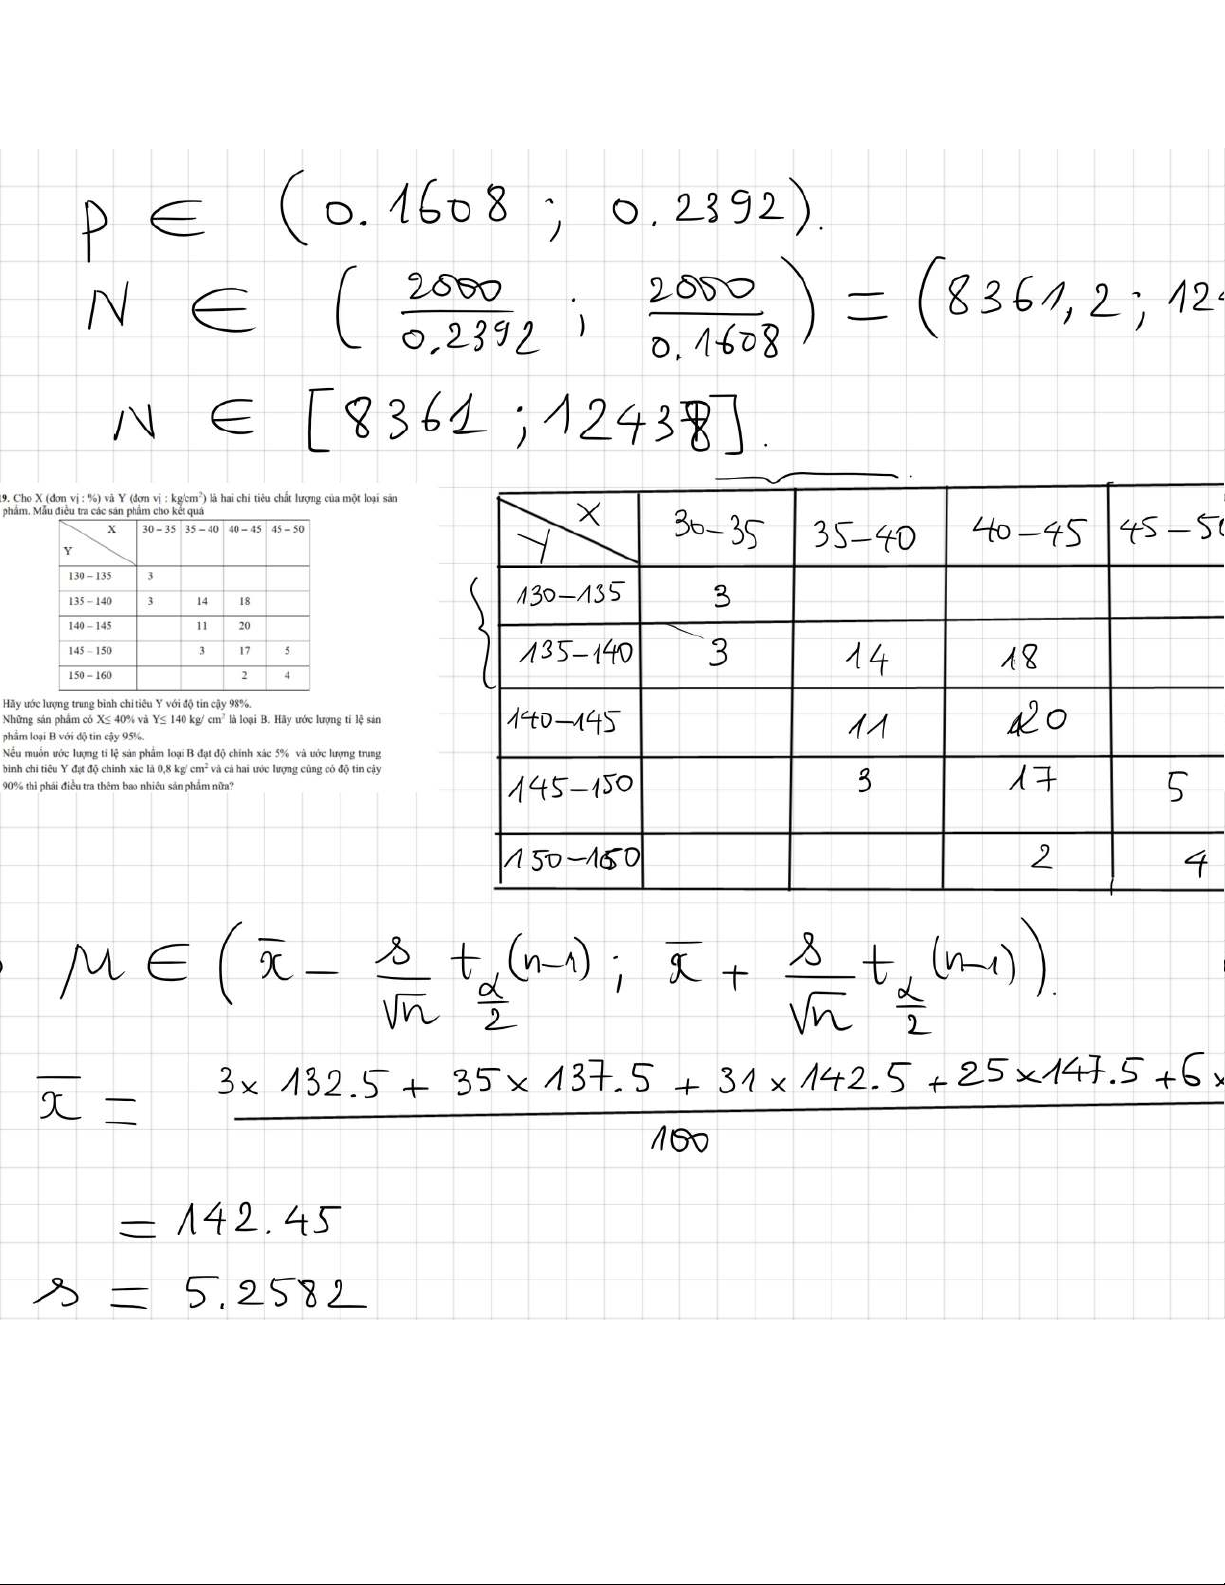 P ∈ (0.1608 ; 0.2392).
N ∈ (2000/0.2392 ; 2000/0.1608) = (8361,2 ; 12
N ∈ [8361 ; 12438].
9. Cho X (đơn vị : %) và Y (đơn vị : kg/cm²) là hai chỉ tiêu chất lượng của một loại sản
phẩm. Mẫu điều tra các sản phẩm cho kết quả
X 30 – 35 35 – 40 40 – 45 45 – 50
Y
130 – 135 3
135 – 140 3 14 18
140 – 145 11 20
145 – 150 3 17 5
150 – 160 2 4
Hãy ước lượng trung bình chỉ tiêu Y với độ tin cậy 98%.
Những sản phẩm có X≤ 40% và Y≤ 140 kg/ cm² là loại B. Hãy ước lượng tỉ lệ sản
phẩm loại B với độ tin cậy 95%.
Nếu muốn ước lượng tỉ lệ sản phẩm loại B đạt độ chính xác 5% và ước lượng trung
bình chỉ tiêu Y đạt độ chính xác là 0,8 kg/ cm² và cả hai ước lượng cùng có độ tin cậy
90% thì phải điều tra thêm bao nhiêu sản phẩm nữa?
X 30–35 35–40 40–45 45–50
Y
130–135 3
135–140 3 14 18
140–145 11 20
145–150 3 17 5
150–160 2 4
μ ∈ (x̄ – s/√n t α/2 (n–1) ; x̄ + s/√n t α/2 (n–1)).
x̄ = 3 x 132.5 + 35 x 137.5 + 31 x 142.5 + 25 x 147.5 + 6 x
100
= 142.45
s = 5.2582